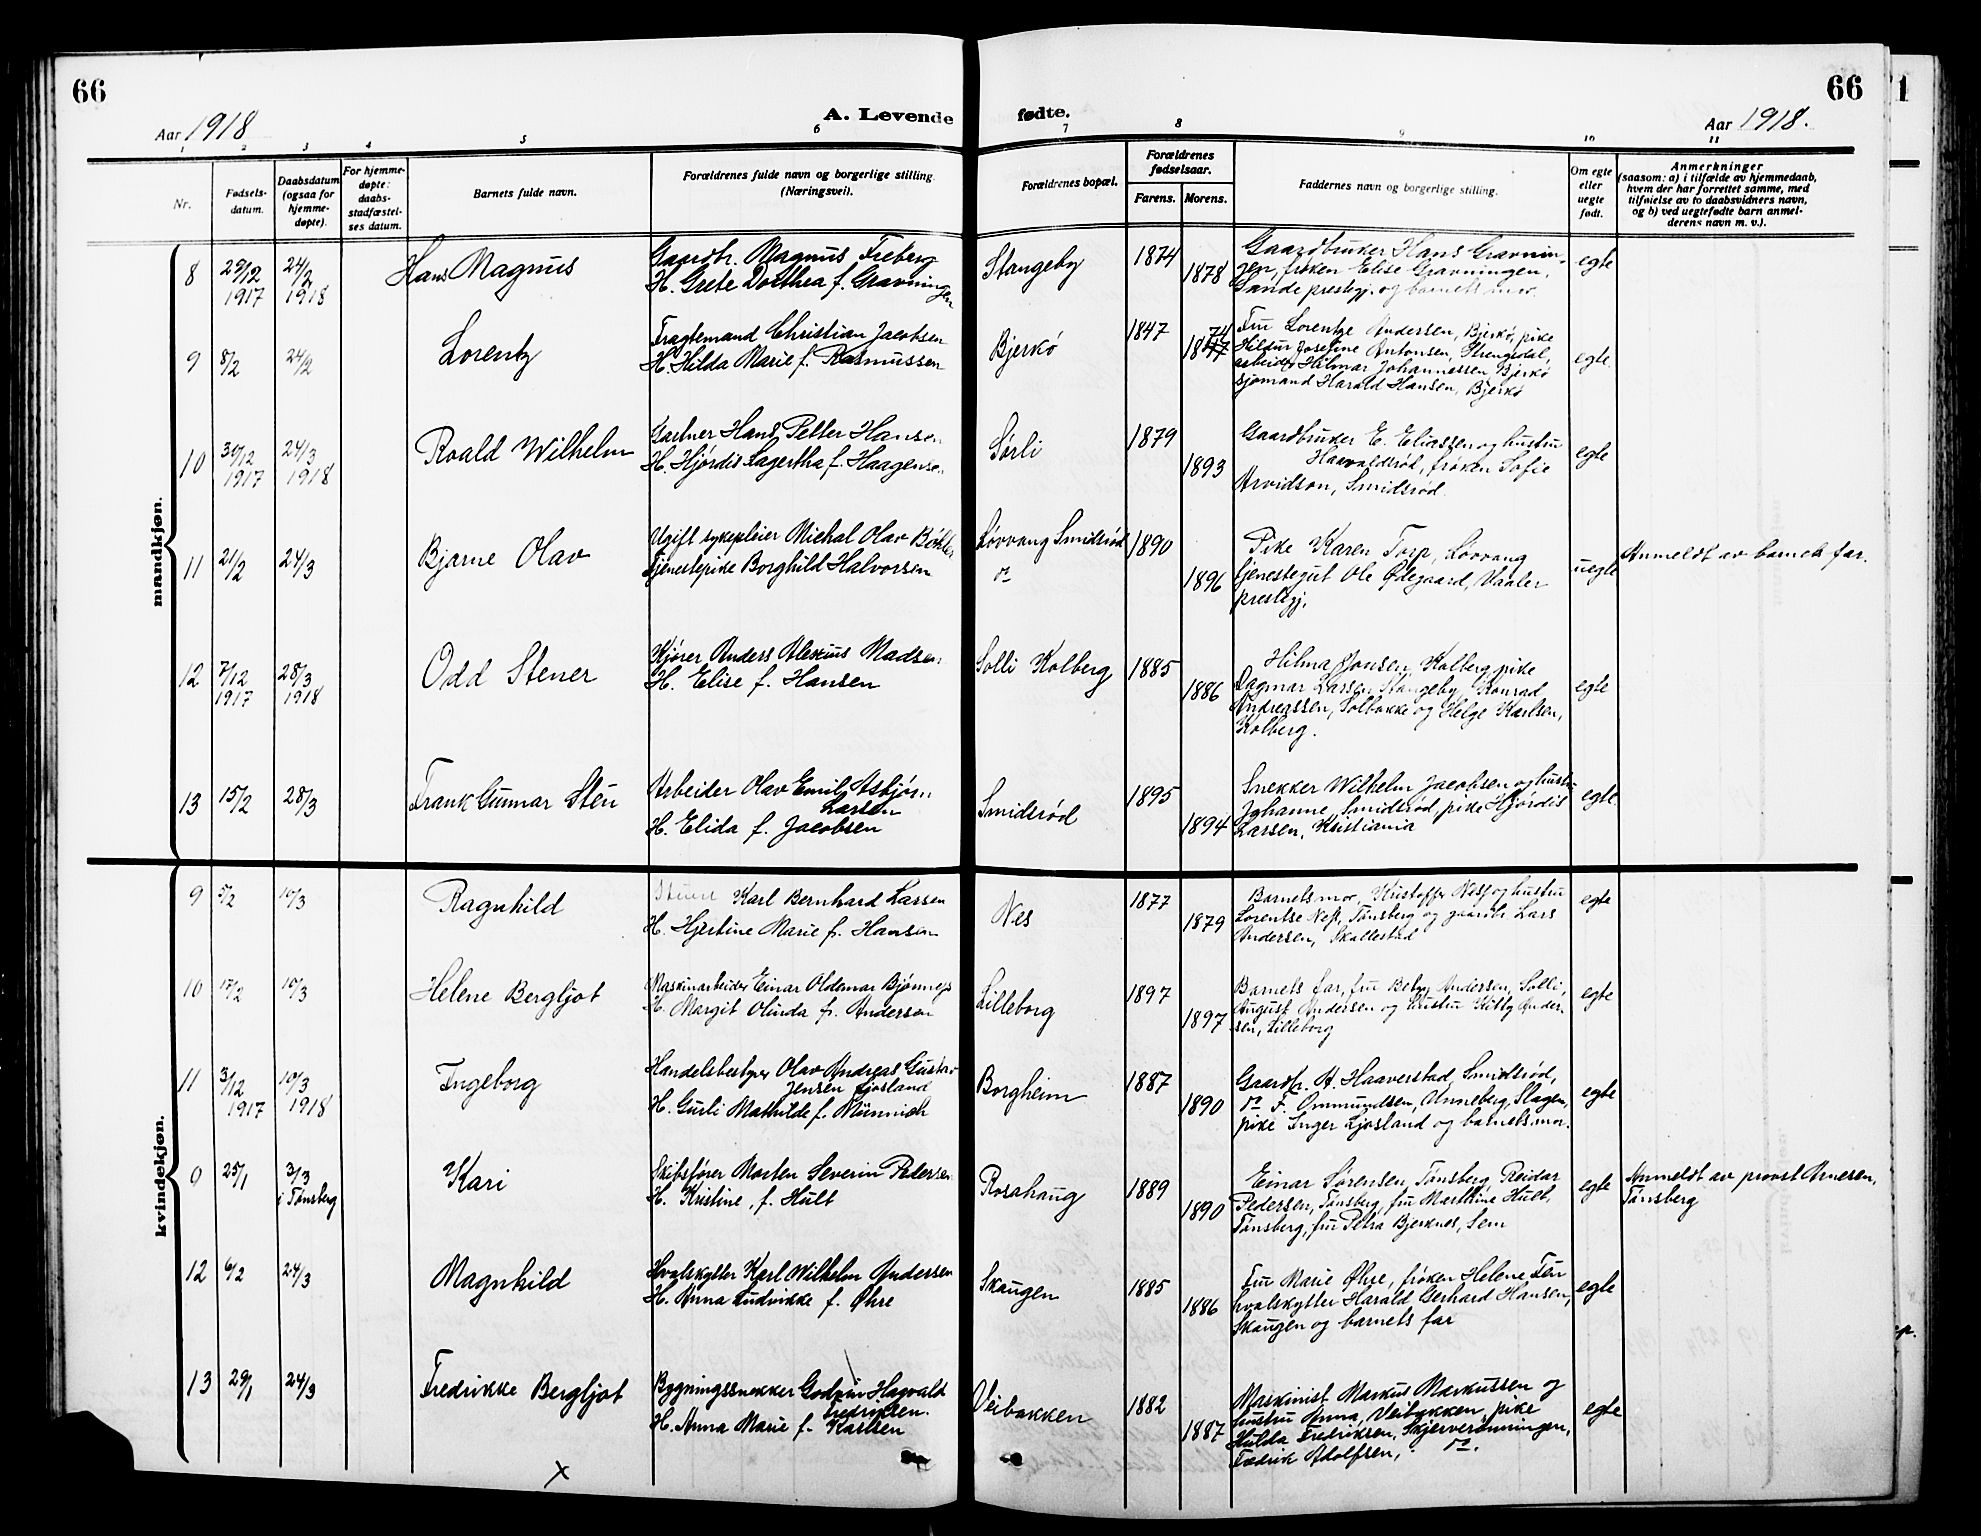 66
66
1
Aar 1918
A. Levende fødte.
Aar 1918.
1 2 3 4 5 6 7 8 9 10 11
Nr.
Fødsels-
datum.
Daabsdatum
(ogsaa for
hjemme-
døpte).
For hjemme-
døpte:
daabs-
stadfæstel-
ses datum.
Barnets fulde navn.
Forældrenes fulde navn og borgerlige stilling.
(Næringsvei).
Forældrenes bopæl.
Forældrenes
fødselsaar.
Farens. Morens.
Faddernes navn og borgerlige stilling.
Om egte
eller
uegte
født.
Anmerkninger
(saasom: a) i tilfælde av hjemmedaab,
hvem der har forrettet samme, med
tilføielse av to daabsvidners navn,
og b) ved uegtefødte barn anmel-
derens navn m. v.).
mandkjøn.
8 29/12 1917 24/2 1918 Hans Magnus
Gaardbr. Magnus Freberg
H. Grete Dorthea f. Gravningen
Stangeby 1874 1878
Gaardbruker Hans Gravnin-
gen, frøken Elise Gravningen,
Sande prestegj. og barnets mor.
egte
9 8/2 24/2 Lorentz
Fragtemand Christian Jacobsen
H. Hilda Marie f. Rasmussen
Bjerkø 1847 1874
Fru Lorentze Andersen, Bjerkø, pike
Hildur Josefine Antonsen, Strengsdal,
arbeider Hilmar Johannessen Bjerkø
sjømand Harald Hansen, Bjerkø
egte.
10 30/12 1917 24/3 1918 Roald Wilhelm
Gartner Hans Petter Hansen
H. Hjørdis Lagertha f. Haagensen
Sørli 1879 1893
Gaardbruker E. Eliassen og hustru
Haavaldsrød, frøken Sofie
Arvidson, Smidsrød.
egte
11 21/2 24/3 Bjarne Olav
Ugift sykepleier Michal Olav
Tjenestepike Borghild Halvorsen
Løvvang Smidsrød
do
1890 1896
Pike Karen Torp, Løvvang
tjenestegut Ole Ødegaard, Vaaler
prestegj.
uegte
Anmeldt av barnets far.
12 7/12 1917 28/3 1918 Odd Stener
Kjører Anders Alexius Madsen
H. Elise f. Hansen
Solli Kolberg 1885 1886
Hilma Jonsen, Kolberg, pike
Dagmar Larsen Stangeby, Konrad
Andreassen, Solbakke og Helge Karlsen,
Kolberg.
egte
13 15/2 28/3 Frank Gunnar Steu
Arbeider Olav Emil Asbjørn
Larsen
H. Elida f. Jacobsen
Smidsrød 1895 1894
Snekker Wilhelm Jacobsen og hustru
Johanne, Smidsrød, pike Hjørdis
Larsen, Kristiania
egte
kvindekjøn.
9 5/2 10/3 Ragnhild
Karl Bernhard Larsen
H. Hjertine Marie f. Hansen
Nes 1877 1879
Barnets mor, Kristoffer Ness og hustru
Lorentse Ness, Tønsberg og gaardbr Lars
Andersen, Skallestad
egte
10 17/2 10/3 Helene Bergljot
Maskinarbeider Einar Oldemar Bjønness
H. Margit Olinda f. Andersen
Lilleborg 1897 1897
Barnets far, fru Betzy Andersen, Solli,
August Andersen og hustru Kitty Ander-
sen, Lilleborg
egte
11 3/12 1917 10/3 1918 Ingeborg
Handelsbestyrer Olav Andreas Gustav
Jensen Ljosland
H. Gurli Mathilde f. Münnich
Borgheim 1887 1890
Gaardbr. A. Haaverstad, Smidsrød,
do F. Ommundsen, Unneberg, Slagen,
pike Inger Ljosland og barnets mor.
egte
0 25/1 3/3 i Tønsberg Kari
Skibsfører Morten Severin Pedersen
H. Kristine, f. Hult
Rosahaug 1889 1890
Einar Sørensen, Tønsberg, Reidar
Pedersen, Tønsberg, fru Marthine Hult,
Tønsberg, fru Petra Bjerknes, Sem
egte
Anmeldt av provst Arnesen,
Tønsberg
12 6/2 24/3 Magnhild
Hvalskytter Karl Wilhelm Andersen
H. Anna Ludvikke f. Øhre
Skaugen 1885 1886
Fru Marie Øhre, frøken Helene Feu
hvalskytter Harald Gerhard Hansen,
Skaugen og barnets far
egte
13 29/1 24/3 Fredrikke Bergljot
Bygningssnekker Godvin Hagvald
Fredriksen.
H. Anna Marie f. Karlsen
Veibakken 1882 1887
Maskinist Markus Markussen og
hustru Anna, Veibakken, pike
Hulda Fredriksen, Skjerverønningen,
Fredrik Adolfsen, do.
egte
x